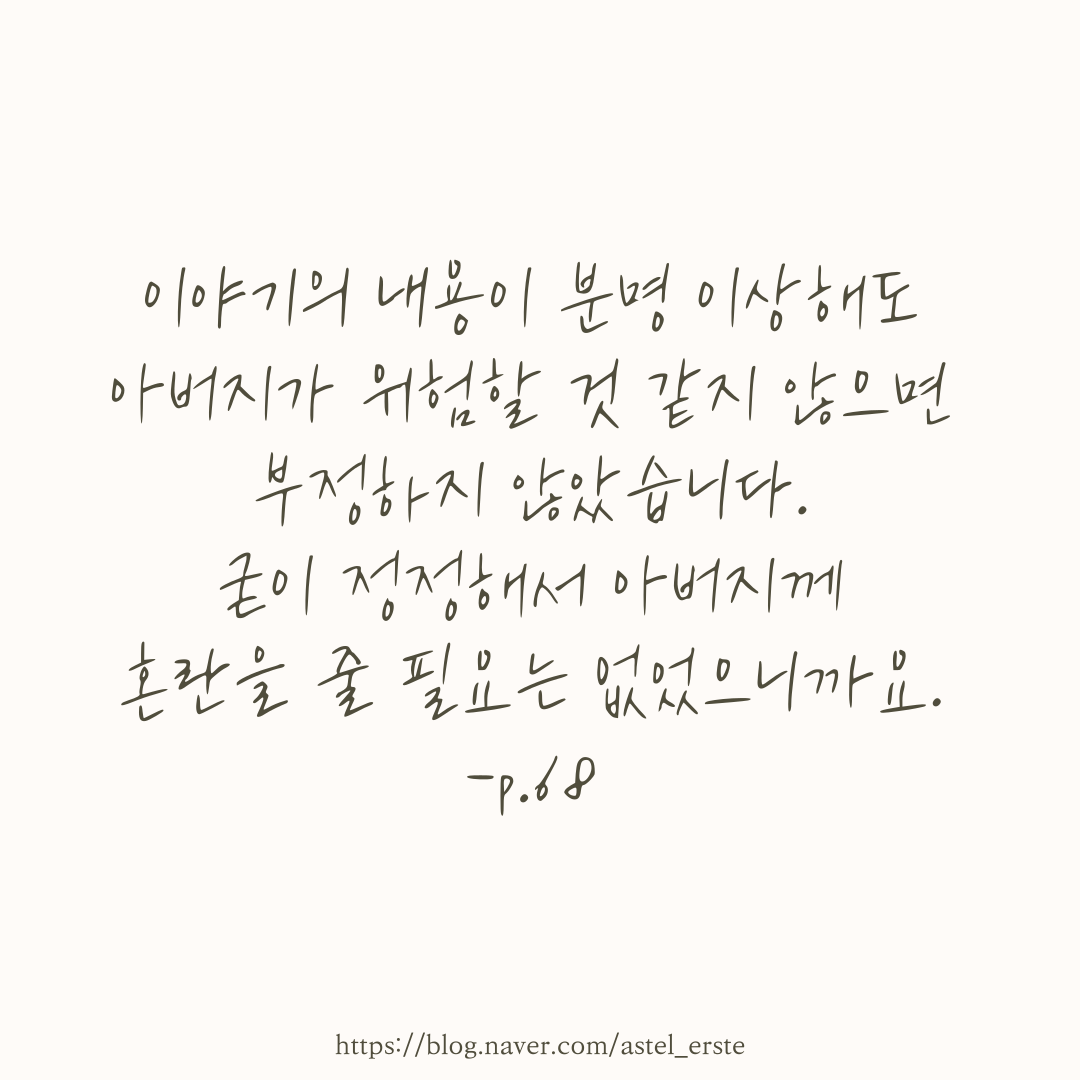 이야기의 내용이 분명 이상해도
아버지가 위험할 것 같지 않으면
부정하지 않았습니다.
굳이 정정해서 아버지께
혼란을 줄 필요는 없었으니까요.
-p.68
https://blog.naver.com/astel_erste